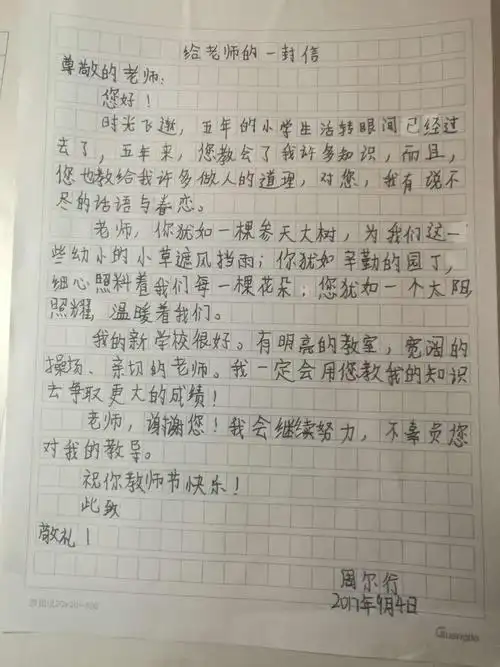 给老师的一封信
尊敬的老师:
您好!
时光飞逝,五年的小学生活转眼间已经过
去了,五年来,您教会了我许多知识,而且,
您也教给我许多做人的道理,对您,我有说不
尽的话语与眷恋。
老师,你犹如一棵参天大树,为我们这一
些幼小的小草遮风挡雨;你犹如辛勤的园丁,
细心照料着我们每一棵花朵;您犹如一个太阳
照耀,温暖着我们。
我的新学校很好。有明亮的教室,宽阔的
操场、亲切的老师。我一定会用您教我的知识
去争取更大的成绩!
老师,谢谢您!我会继续努力,不辜负您
对我的教导。
祝你教师节快乐!
此致
敬礼!
周尔行
2017年9月4日
Guangbo